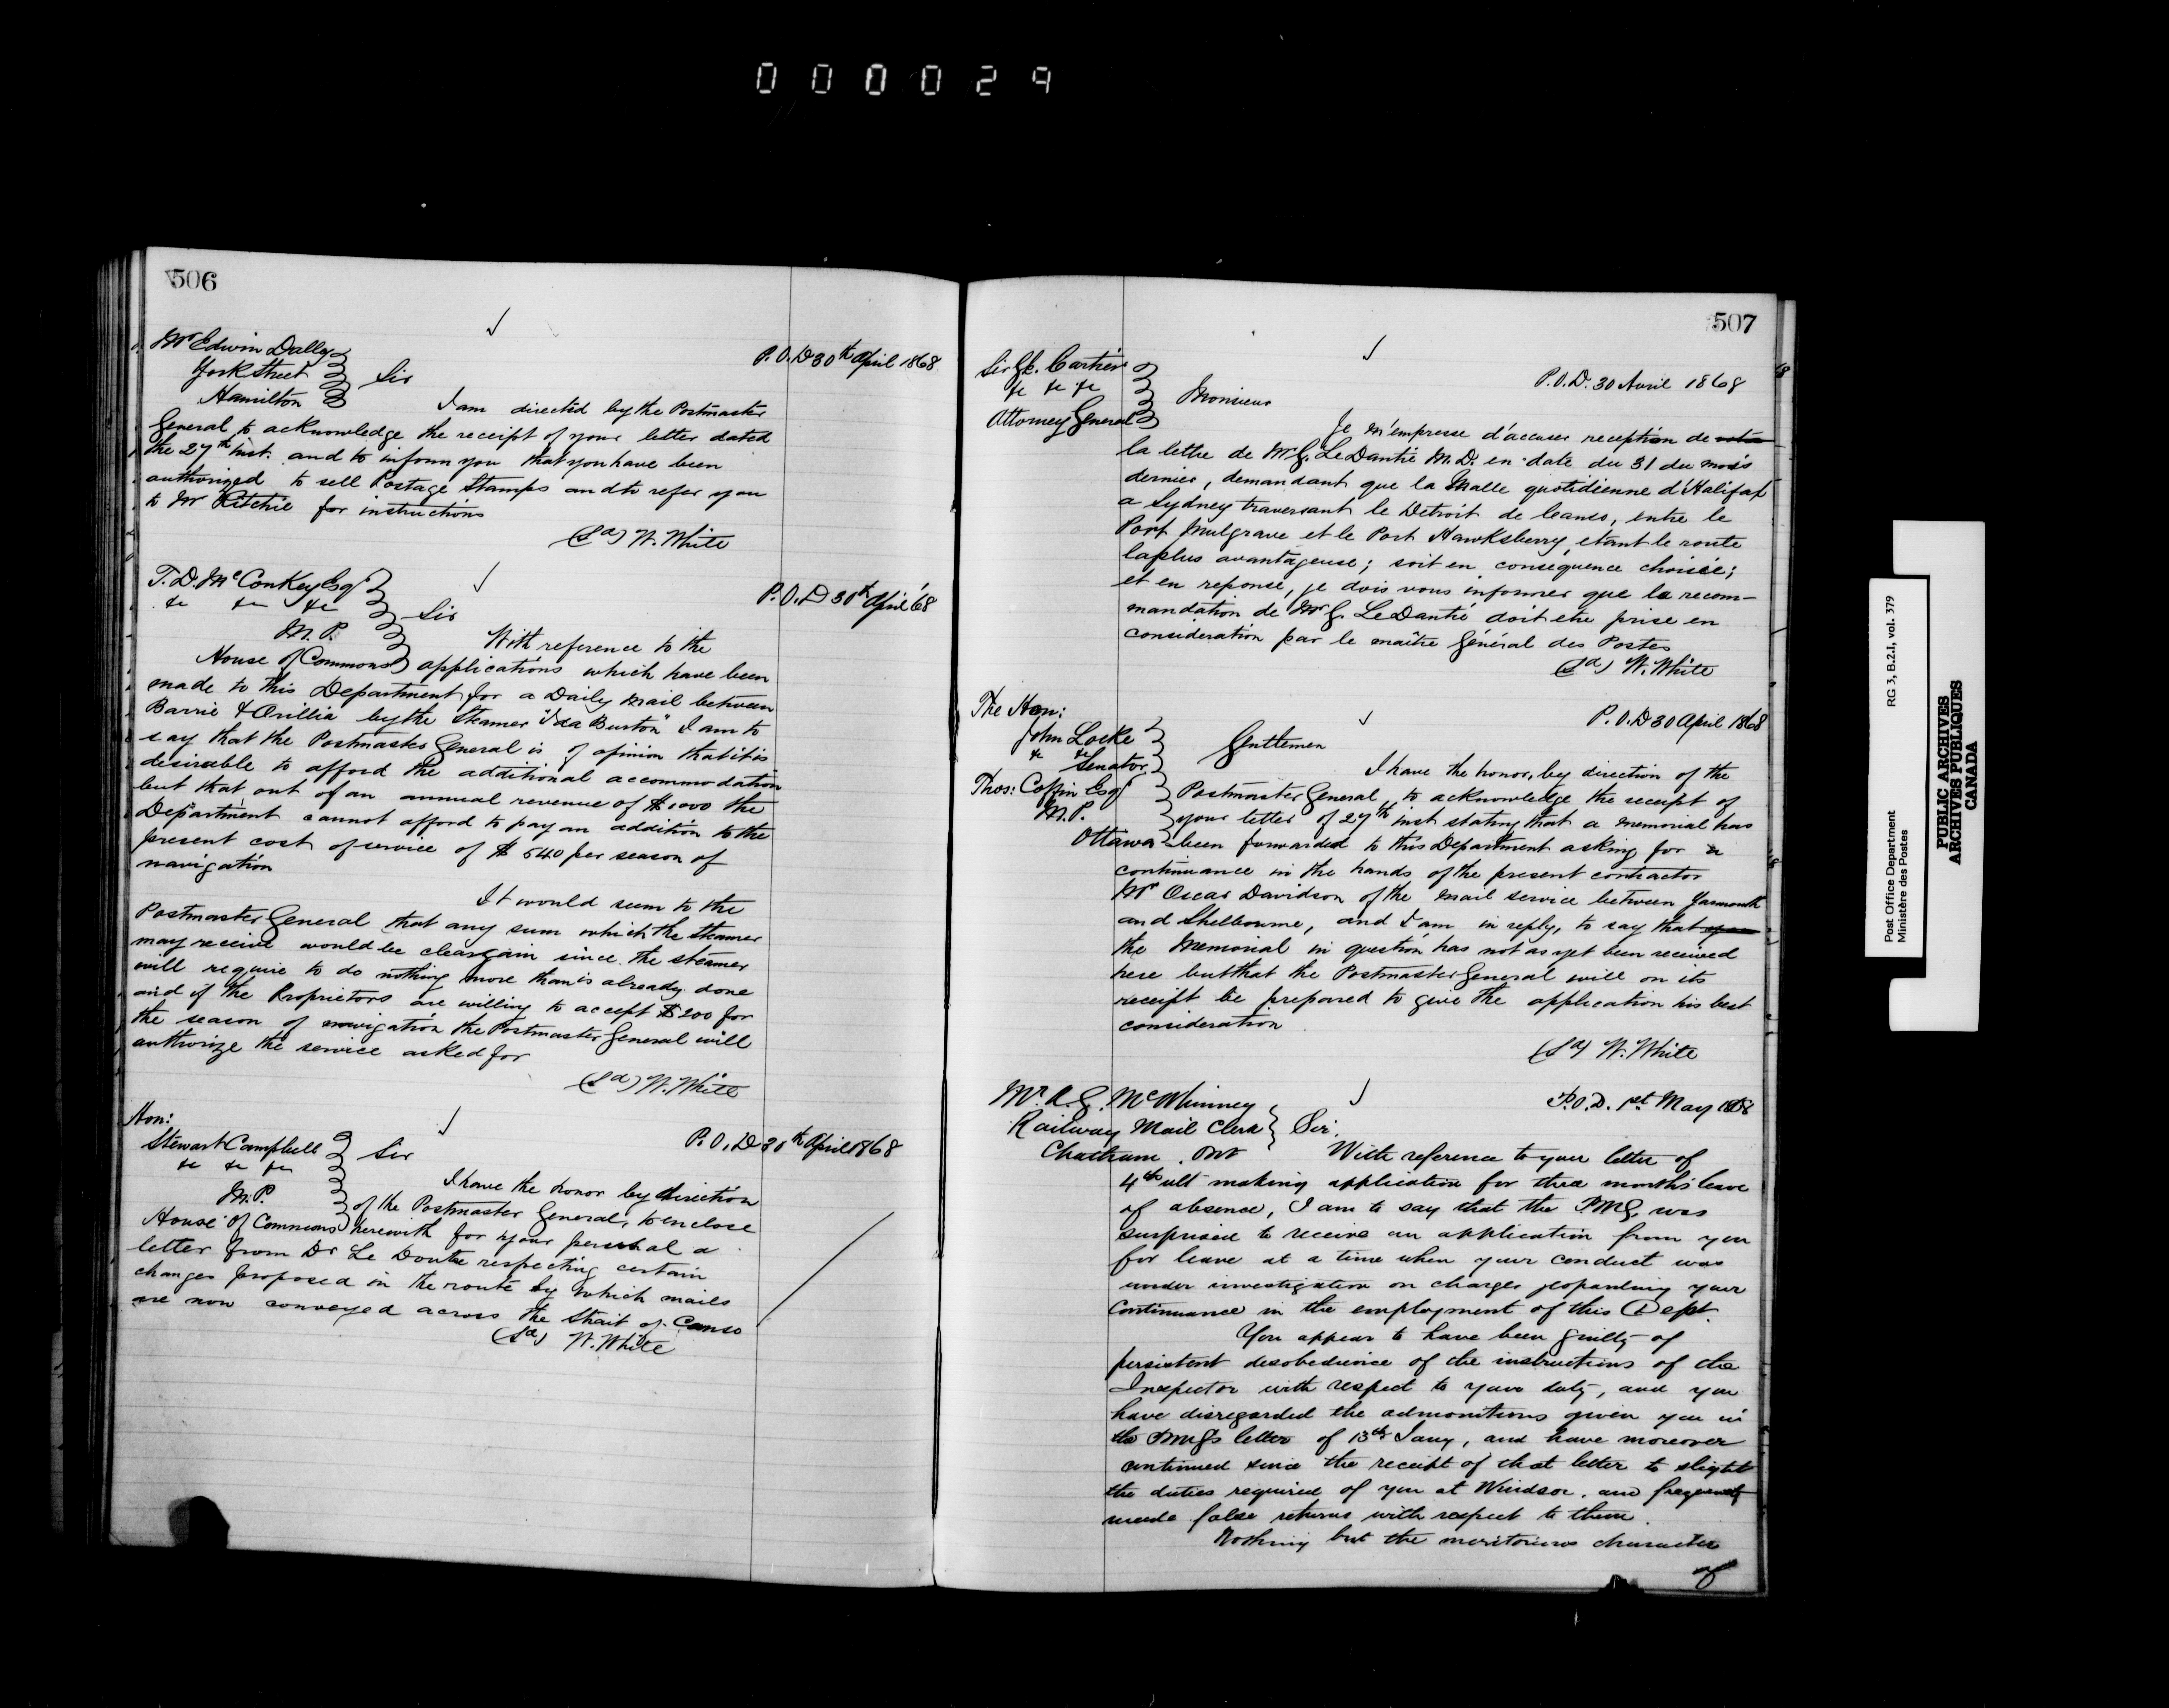 000029
506
Mr Edwin Dally
York Street
Hamilton
Sir
P.O.D 30th April 1868
I am directed by the Postmaster
General to acknowledge the receipt of your letter dated
the 27th inst. and to inform you that you have been
authorized to sell Postage Stamps and to refer you
to Mr Ritchie for instructions
(Sd) W. White
T. D. McConkey Esqr
&c &c &c
M.P.
House of Commons
Sir
P.O.D 30th April '68
With reference to the
applications which have been
made to this Department for a Daily mail between
Barrie & Orillia by the Steamer "Ida Burton" I am to
say that the Postmaster General is of opinion that it is
desirable to afford the additional accommodation
but that out of an annual revenue of $1000 the
Department cannot afford to pay an addition to the
present cost of service of $540 per season of
navigation
It would seem to the
Postmaster General that any sum which the Steamer
may receive would be clear gain since the steamer
will require to do nothing more than is already done
and if the Proprietors are willing to accept $200 for
the season of navigation the Postmaster General will
authorize the service asked for
(Sd) W. White
Hon:
Stewart Campbell
&c &c &c
M.P.
House of Commons
Sir
P.O.D 30th April 1868
I have the honor by direction
of the Postmaster General, to enclose
herewith for your perusal a
letter from Dr Le Doutre respecting certain
changes proposed in the route by which mails
are now conveyed across the Strait of Canso
(Sd) W. White
507
Sir G.E. Cartier
&c &c &c
Attorney General
Monsieur
P.O.D. 30 Avril 1868
Je m'empresse d'accuser reception de votre
la lettre de Mr G. Le Dantié M.D. en date du 31 du mois
dernier, demandant que la Malle quotidienne d'Halifax
a Sydney traversant le Detroit de Canso, entre le
Port Mulgrave et le Port Hawksberry, etant le route
la plus avantageuse; soit en consequence choisie;
et en reponse, je dois vous informer que la recom-
mandation de Mr G. Le Dantié doit etre prise en
consideration par le maître Général des Postes
(Sd) W. White
The Hon:
John Locke
& &c
Senator
Thos: Coffin Esqr
M.P.
Ottawa
Gentlemen
P.O.D 30 April 1868
I have the honor, by direction of the
Postmaster General, to acknowledge the receipt of
your letter of 27th inst stating that a memorial has
been forwarded to this Department asking for a
continuance in the hands of the present contractor
Mr Oscar Davidson of the mail service between Yarmouth
and Shelbourne, and I am in reply, to say that
the Memorial in question has not as yet been received
here but that the Postmaster General will on its
receipt be prepared to give the application his best
consideration
(Sd) W. White
Mr. A. G. McWhinney
Railway Mail Clerk
Chatham. Ont
Sir.
P.O.D. 1st May 1868
With reference to your letter of
4th ult making application for three months' leave
of absence, I am to say that the P.M.G. was
surprised to receive an application from you
for leave at a time when your conduct was
under investigation on charges jeopardizing your
Continuance in the employment of this Dept.
You appear to have been guilty of
persistent disobedience of the instructions of the
Inspector with respect to your duty, and you
have disregarded the admonitions given you in
the PMG's letter of 13th Jany, and have moreover
continued since the receipt of that letter to slight
the duties required of you at Windsor, and frequently
made false returns with respect to them.
Nothing but the meritorious character
of
Post Office Department
Ministère des Postes
RG 3, B.2.I, vol. 379
PUBLIC ARCHIVES
ARCHIVES PUBLIQUES
CANADA